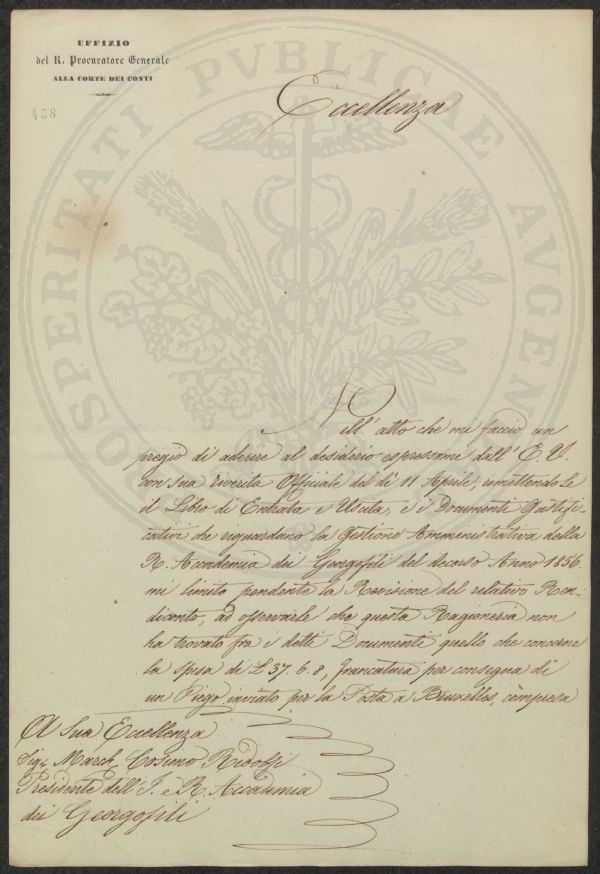 UFFIZIO
del R. Procuratore Generale
ALLA CORTE DEI CONTI
438
PROSPERITATI PVBLICAE AVGENDAE
Eccellenza
Nell' atto che mi faccio un
pregio di aderire al desiderio espressomi dall' E. V.
con sua riverita Officiale del dì 11 Aprile, rimettendole
il Libro di Entrata e Uscita, e i Documenti Giustifi-
cativi che riguardano la Gestione Amministrativa della
R. Accademia dei Georgofili del decorso Anno 1856.
mi limito pendente la Revisione del relativo Ren-
diconto, ad osservarle che questa Ragioneria non
ha trovato fra i detti Documenti quello che concerne
la spesa di £ 37. 6. 8, francatura per consegna di
un Piego inviato per la Posta a Bruxelles, compresa
A Sua Eccellenza
Sigr. March. Cosimo Ridolfi
Presidente dell' I. e R. Accademia
dei Georgofili